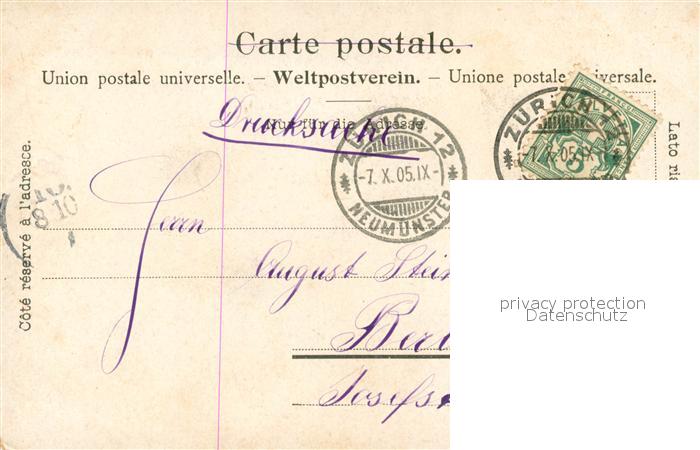 Carte postale.
Union postale universelle. – Weltpostverein. – Unione postale universale.
Nur für die Adresse.
Drucksache
ZÜRICH 12
-7. X. 05. IX-
NEUMÜNSTER
ZÜRICH
-7. X. 05. IX-
Herrn
August Stein
Berl
Josefs
Côté réservé à l'adresse.
Lato ris
8 10
privacy protection
Datenschutz